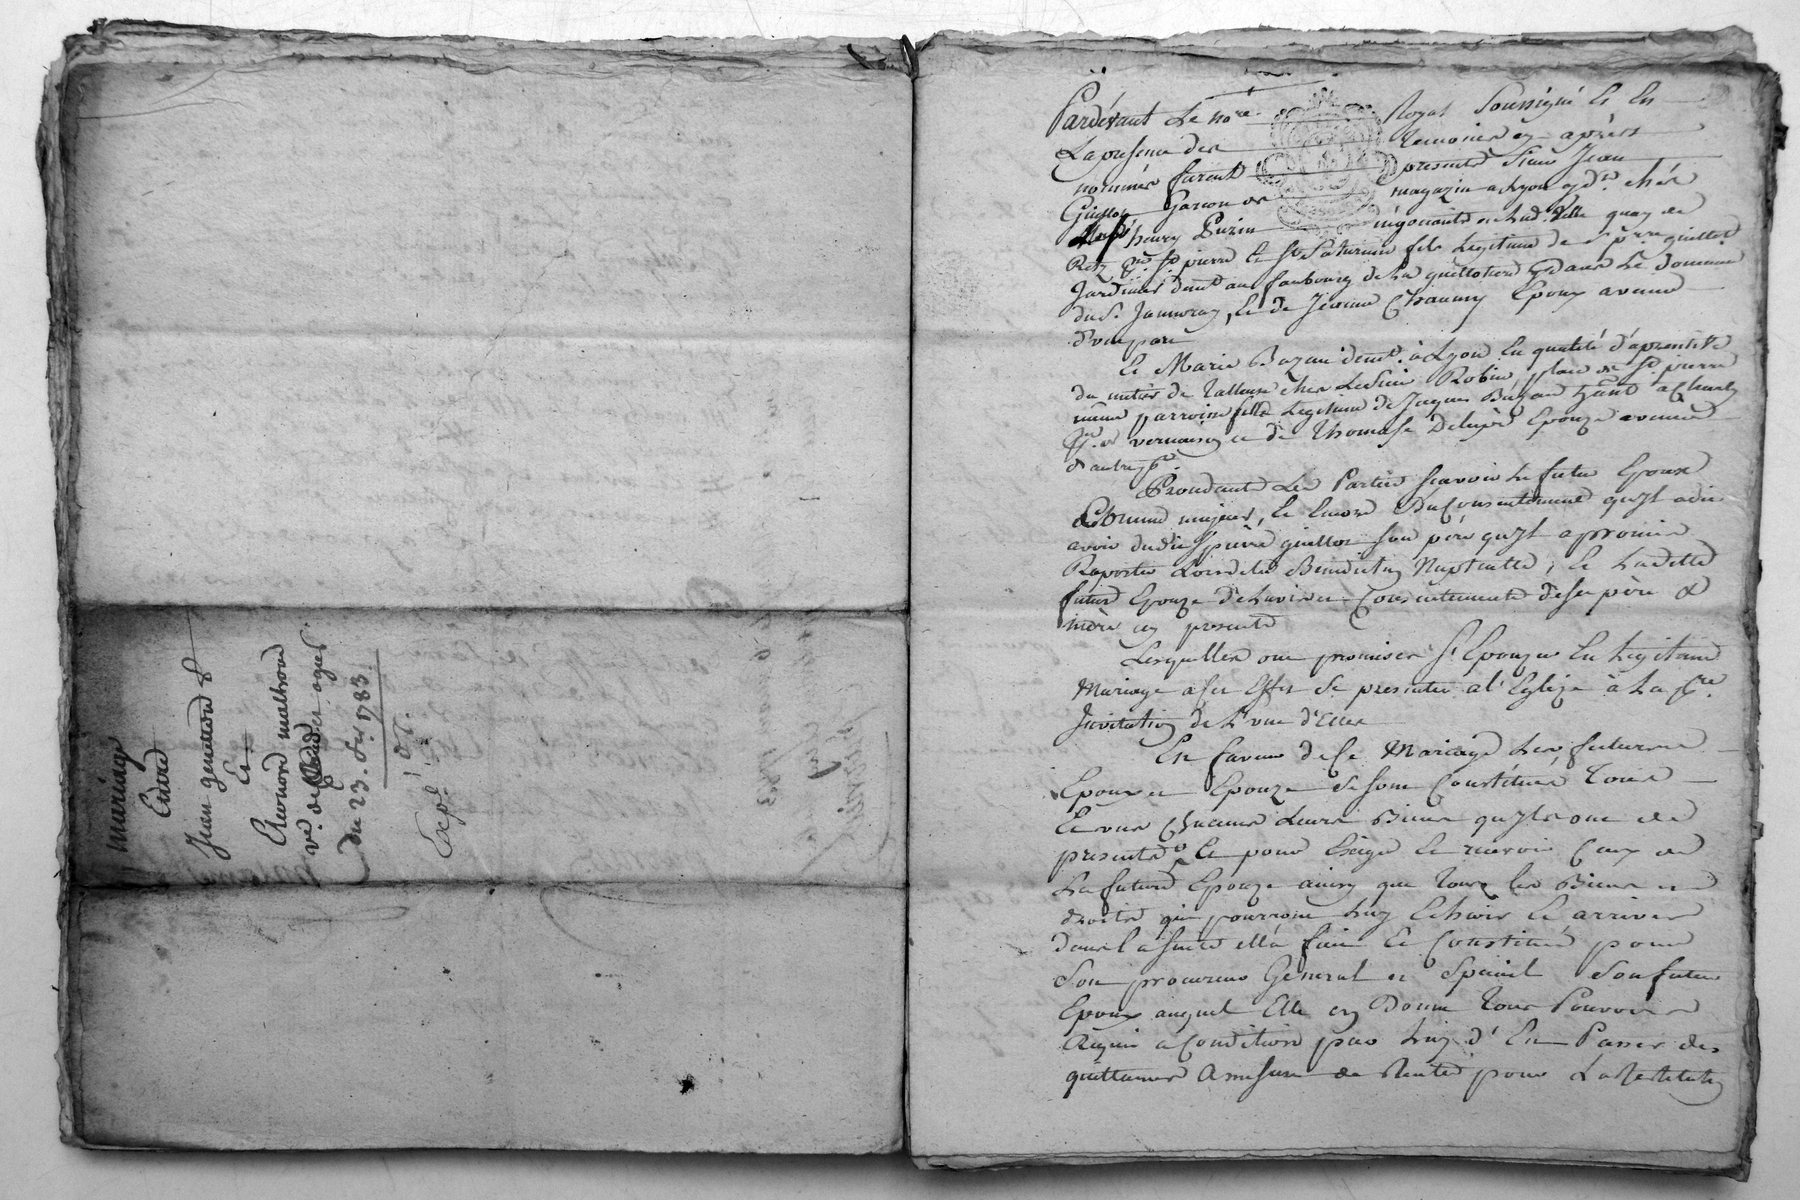 Mariage
Entre
Jean genetton &
Et
Eleonord mathond
ve. de Claude ogier
du 23. fer. 1783
Expé.
Pardevant Le nore. Royal Soussigné Et En
La presence des temoins cy après
nommés furent presents Sieur Jean
Guillot Garcon de magazin a Lyon chés
henry Puzin négociants en lad. Ville quay de
Retz Psse. St pierre Et St Saturnin fils Legitime de Sr. pierre guillot
Jardinier demt. au faubourg de La guillotiere dans Le domaine
du Sr. Et de Jeanne Chaumy Epoux avenus
d'une part
Et Marie Bazan demt. à Lyon En qualité d'aprentive
du métier de tailleuse chés Le Sieur Robin place de St. pierre
même parroisse fille Legitime de Jacques Bazan
de vernaison et de Thomase Epouze avenue
d'autre pt.
Procedants Les Parties scavoir Le futur Epoux
Comme majeur, Et Encore du Consentement qu'jl a dit
avoir dudit Sr pierre guillot Son père qu'jl a promis
Raporter Lors de La Benediction Nuptialle, Et Ladite
future Epouze de L'avis et Consentement de ses père &
mère cy presents
Lesquelles ont promis de S'Epouzer En Legitime
Mariage a ses Effets Se presenter a l'Eglize à La pre.
Invitation de L'une d'Elles
En faveur de Ce Mariage Les futurs
Epoux et Epouze Se sont Constitués tous
Et uns Chacuns Leurs Biens qu'jls ont de
presents, Et pour Exiger Et recevoir Ceux de
La future Epouze ainsy que tous les Biens et
droits qui pourront Luy Echoir Et arriver
dans La suite Ella fait Et Constitué pour
Son procureur General et Special Son futur
Epoux auquel Elle En Donne tous Pouvoirs
Requis a Condition par Luy d' En Passer des
quittances Amesure de Recette pour La Restitution